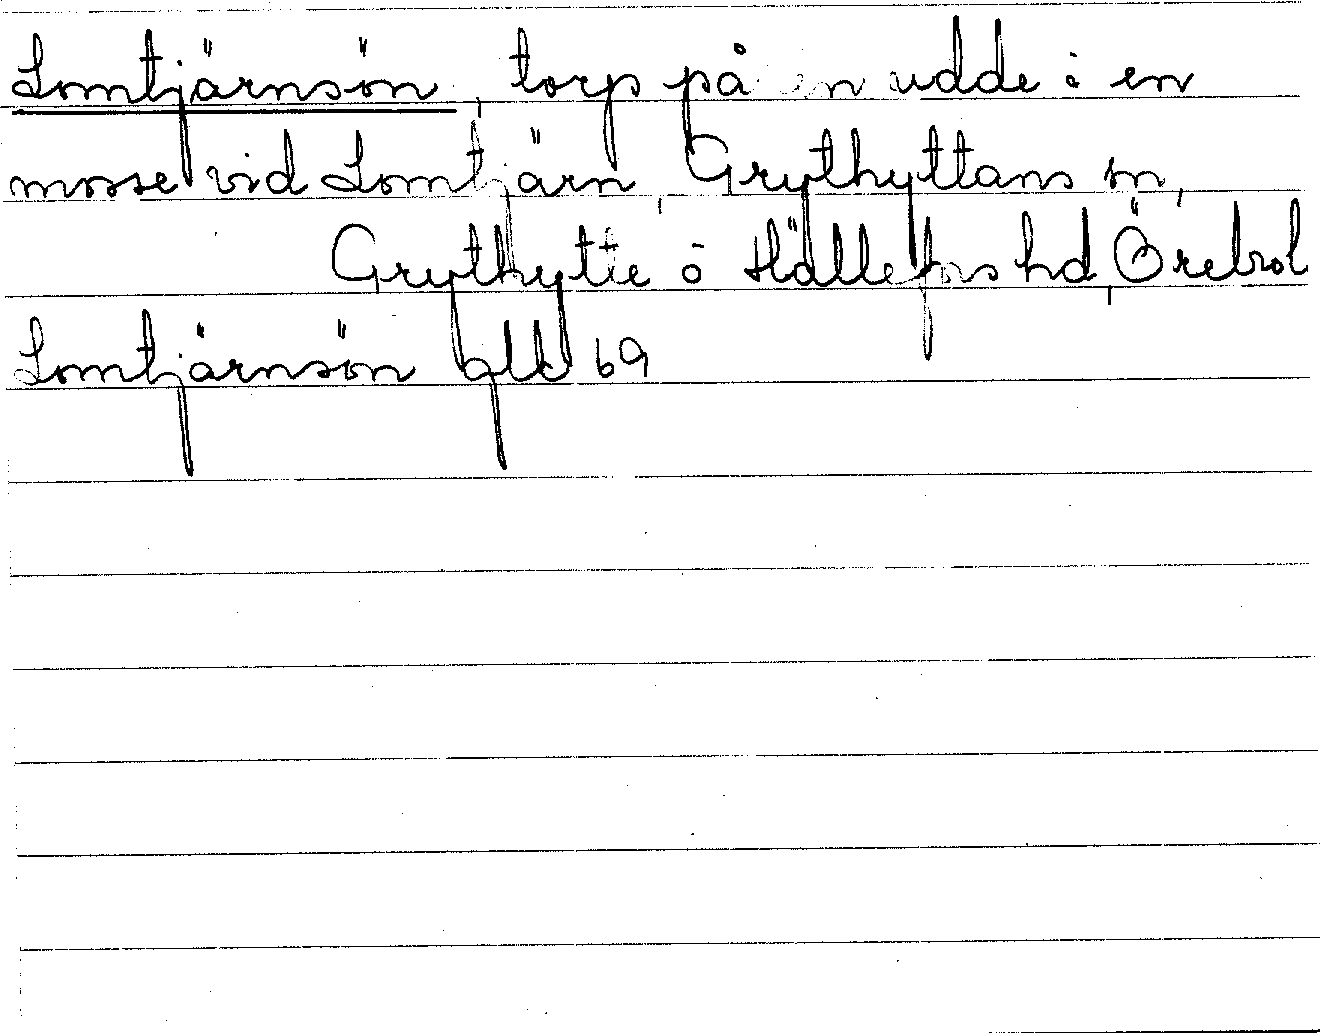 Lomtjärnsön, torp på en udde i en
mosse vid Lomtjärn, Grythyttans sn,
Grythytte o Hällefors hd, Örebro l
Lomtjärnsön glk 69